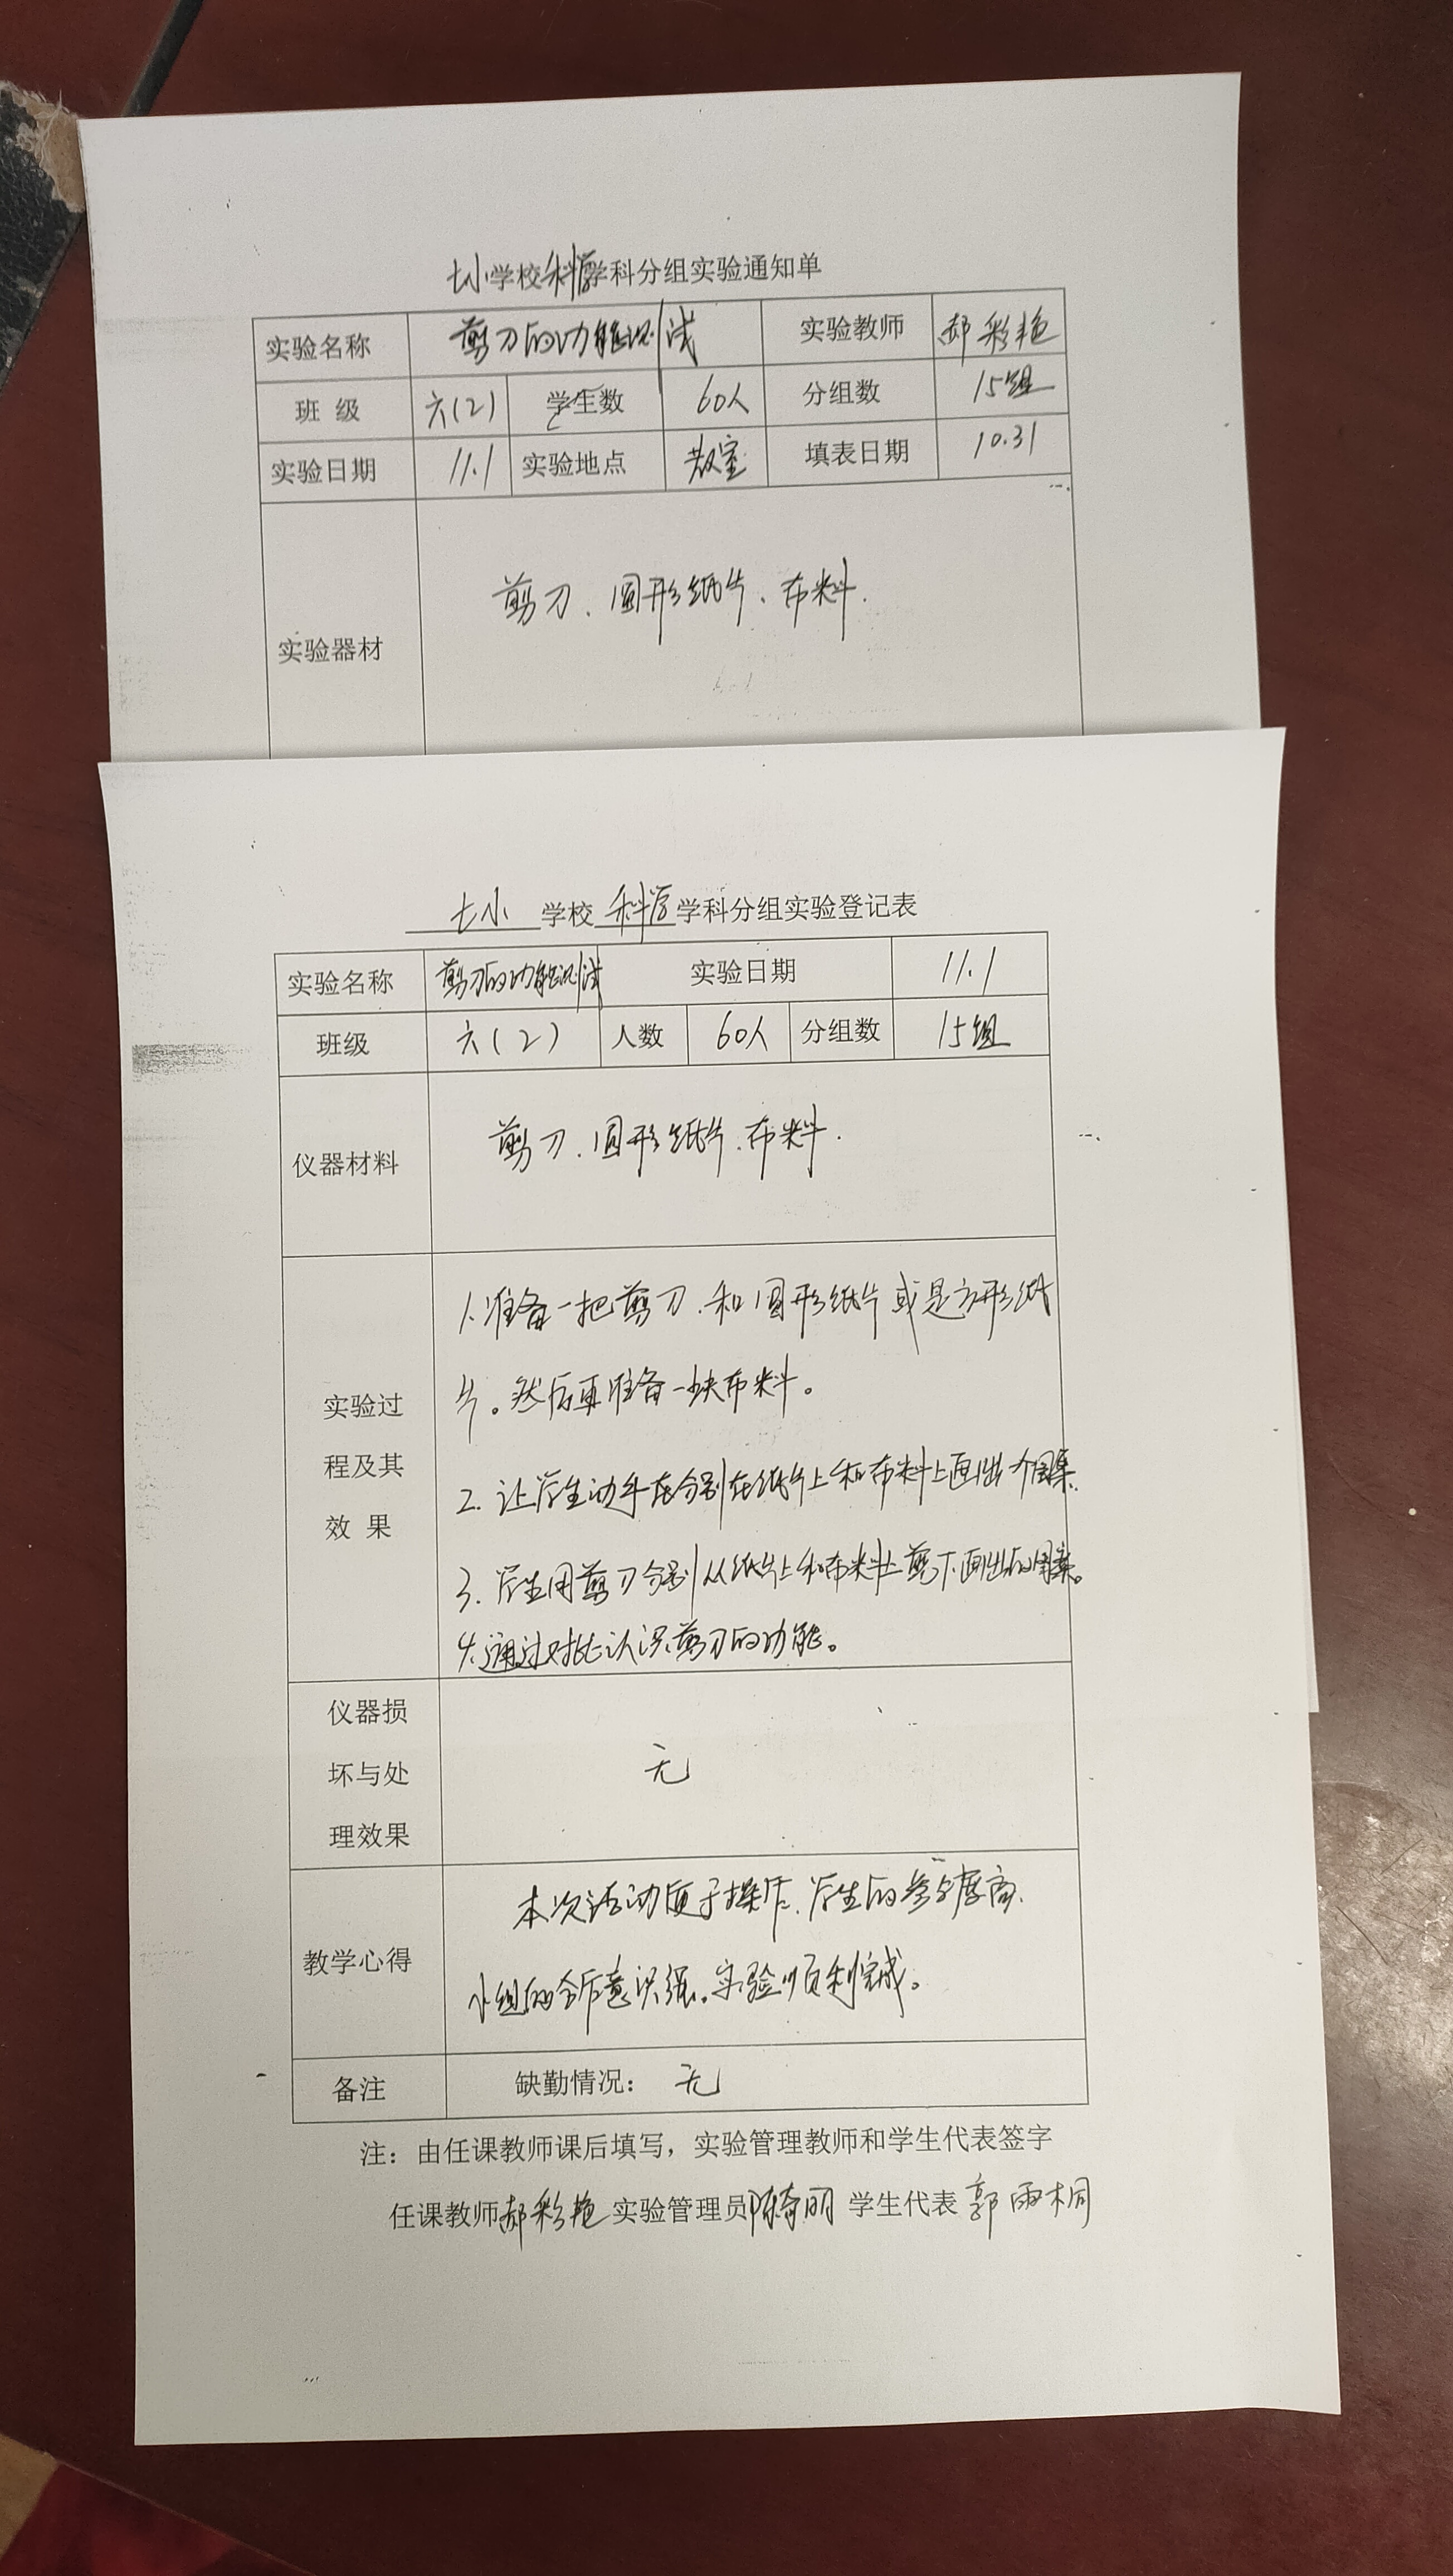 七小学校科学学科分组实验通知单
实验名称 剪刀的功能测试 实验教师 郝彩艳
班 级 六(2) 学生数 60人 分组数 15组
实验日期 11.1 实验地点 教室 填表日期 10.31
实验器材 剪刀、圆形纸片、布料.
七小 学校 科学 学科分组实验登记表
实验名称 剪刀的功能测试 实验日期 11.1
班级 六(2) 人数 60人 分组数 15组
仪器材料 剪刀、圆形纸片、布料.
实验过
程及其
效 果
1.准备一把剪刀.和圆形纸片或是方形纸
片。然后再准备一块布料。
2. 让学生动手在分别在纸片上和布料上画出一个图案.
3. 学生用剪刀分别从纸片上和布料上剪下画出的图案。
4.通过对比认识剪刀的功能。
仪器损
坏与处
理效果
无
教学心得
本次活动便于操作、学生的参与度高、
小组的合作意识强。实验顺利完成。
备注 缺勤情况: 无
注:由任课教师课后填写,实验管理教师和学生代表签字
任课教师郝彩艳 实验管理员陈奇丽 学生代表 郭雨桐